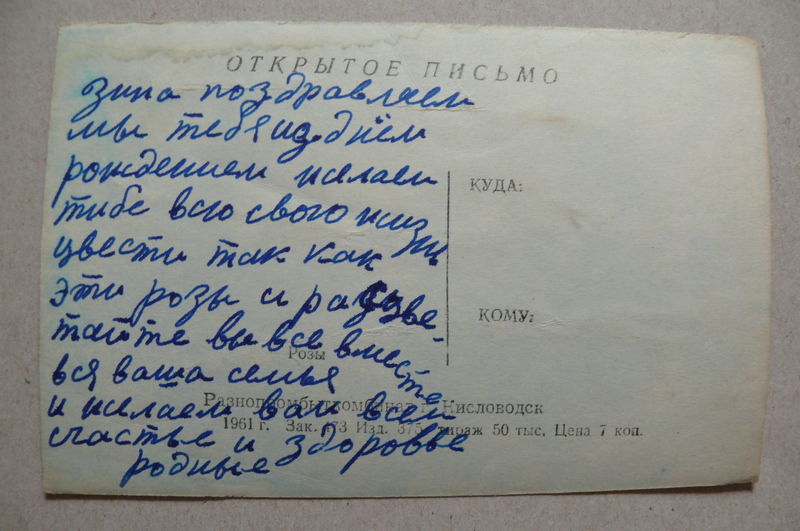 ОТКРЫТОЕ ПИСЬМО
Зина поздравляем
мы тебя из днём
рождением желаем
тибе всю свою жизнь
цвести так как
эти розы и расцве-
тайте вы все вместе
вся ваша семья
и желаем вам всем
счастье и здоровье
родные
КУДА:
КОМУ:
Розы
Разнопромбыткомбинат г. Кисловодск
1961 г. Зак. 473 Изд. 375 тираж 50 тыс. Цена 7 коп.